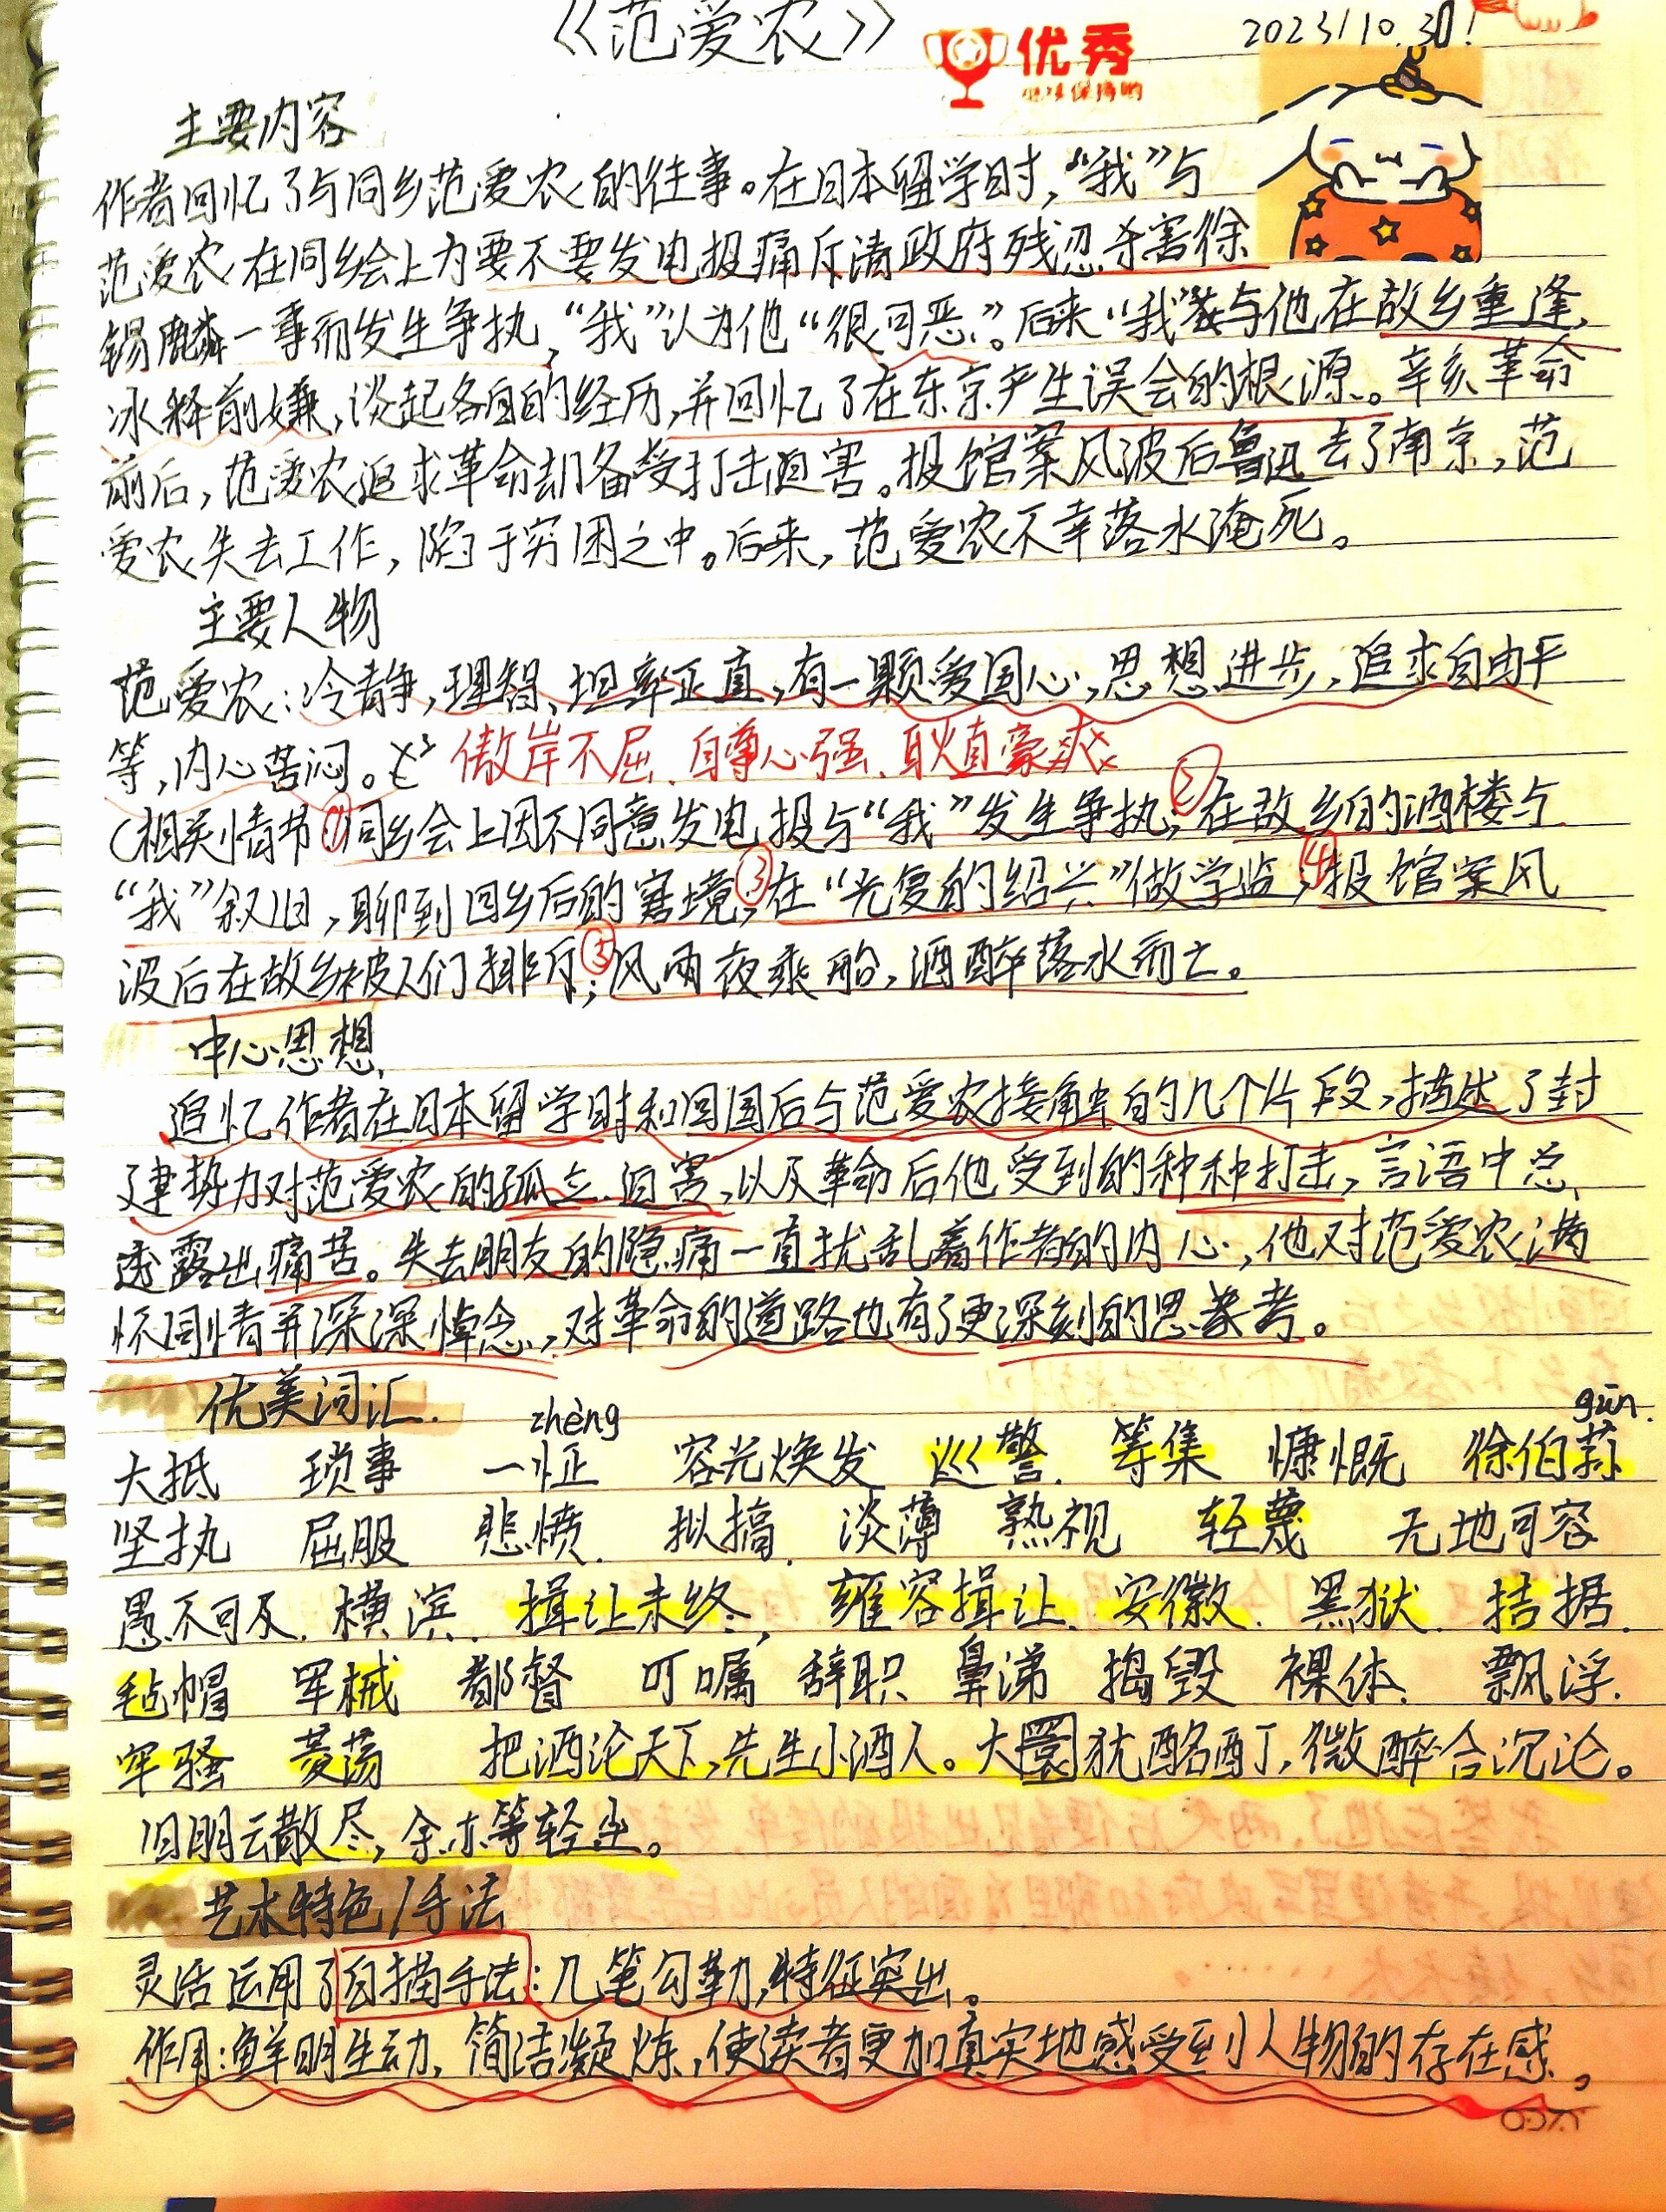 《范爱农》
优秀
继续保持哟
2023/10.30!
主要内容
作者回忆了与同乡范爱农的往事。在日本留学时，“我”与
范爱农在同乡会上为要不要发电报痛斥清政府残忍杀害徐
锡麟一事而发生争执，“我”认为他“很可恶”。后来“我”与他在故乡重逢，
冰释前嫌，谈起各自的经历，并回忆了在东京产生误会的根源。辛亥革命
前后，范爱农追求革命却备受打击迫害。报馆案风波后鲁迅去了南京，范
爱农失去工作，陷于穷困之中。后来，范爱农不幸落水淹死。
主要人物
范爱农：冷静，理智、坦率正直，有一颗爱国心，思想进步，追求自由平
等，内心苦闷。 傲岸不屈、自尊心强、耿直豪爽
（相关情节①同乡会上因不同意发电报与“我”发生争执；②在故乡的酒楼与
“我”叙旧，聊到回乡后的窘境；③在“光复的绍兴”做学监；④报馆案风
波后在故乡被人们排斥；⑤风雨夜乘船，酒醉落水而亡。
中心思想
追忆作者在日本留学时和回国后与范爱农接触的几个片段，描述了封
建势力对范爱农的孤立、迫害，以及革命后他受到的种种打击，言语中总
透露出痛苦。失去朋友的隐痛一直扰乱着作者的内心，他对范爱农满
怀同情并深深悼念，对革命的道路也有了更深刻的思考。
优美词汇
zhèng gūn
大抵 琐事 一怔 容光焕发 巡警 筹集 慷慨 徐伯荪
坚执 屈服 悲愤 拟搞 淡薄 熟视 轻蔑 无地可容
愚不可及 横滨 揖让未终 雍容揖让 安徽 黑狱 拮据
毡帽 军械 都督 叮嘱 辞职 鼻涕 捣毁 裸体 飘浮
牢骚 菱荡 把酒论天下，先生小酒人。大圜犹酩酊，微醉合沉沦。
旧朋云散尽，余亦等轻尘。
艺术特色/手法
灵活运用了白描手法：几笔勾勒，特征突出。
作用：鲜明生动，简洁凝炼，使读者更加真实地感受到小人物的存在感。